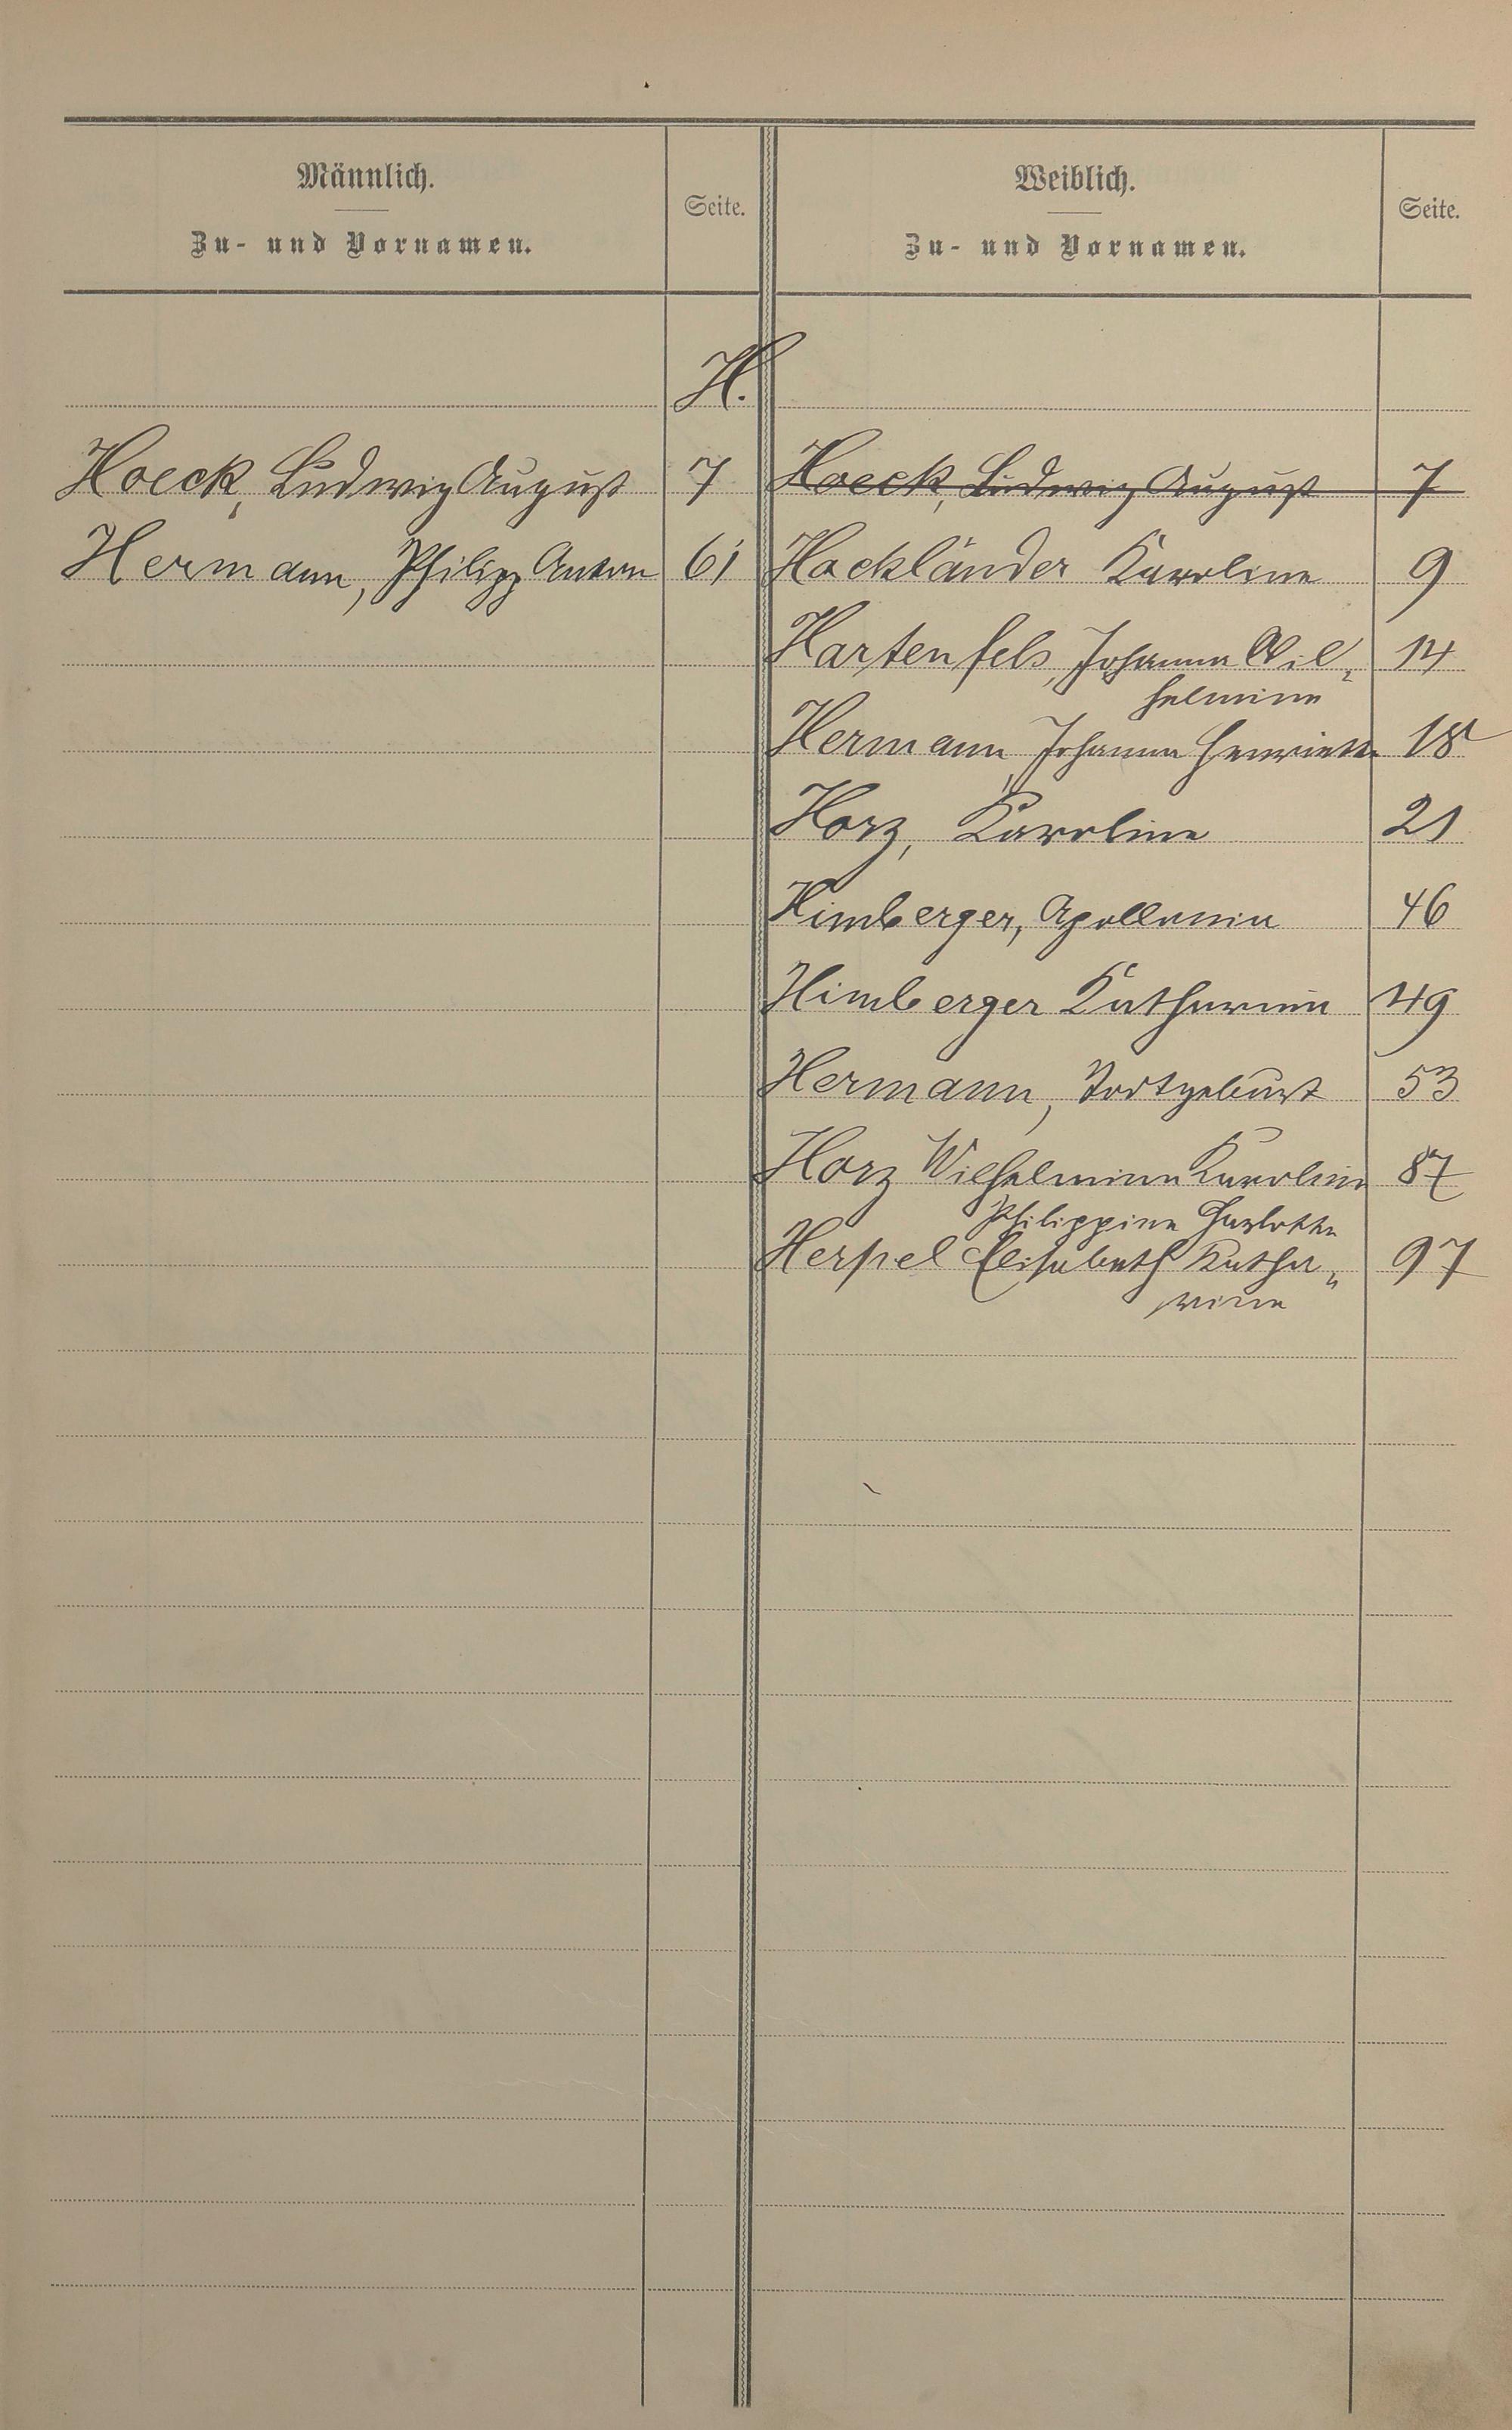 Männlich.
Zu- und Vornamen.
Seite.
Weiblich.
Zu- und Vornamen.
Seite.
H.
Hoeck, Ludwig August 7 Hoeck, Ludwig August 7
Hermann, Philipp Anton 61 Hackländer Karoline 9
Hartenfels, Johanna Wil- 14
helmine
Hermann, Johanna Henriette 18
Horz, Karoline 21
Himberger, Apollonia 46
Himberger Katharina 49
Hermann, Todtgeburt 53
Horz Wilhelmine Karoline 87
Philippine Charlotte
Herpel Elisabeth Katha- 97
rine